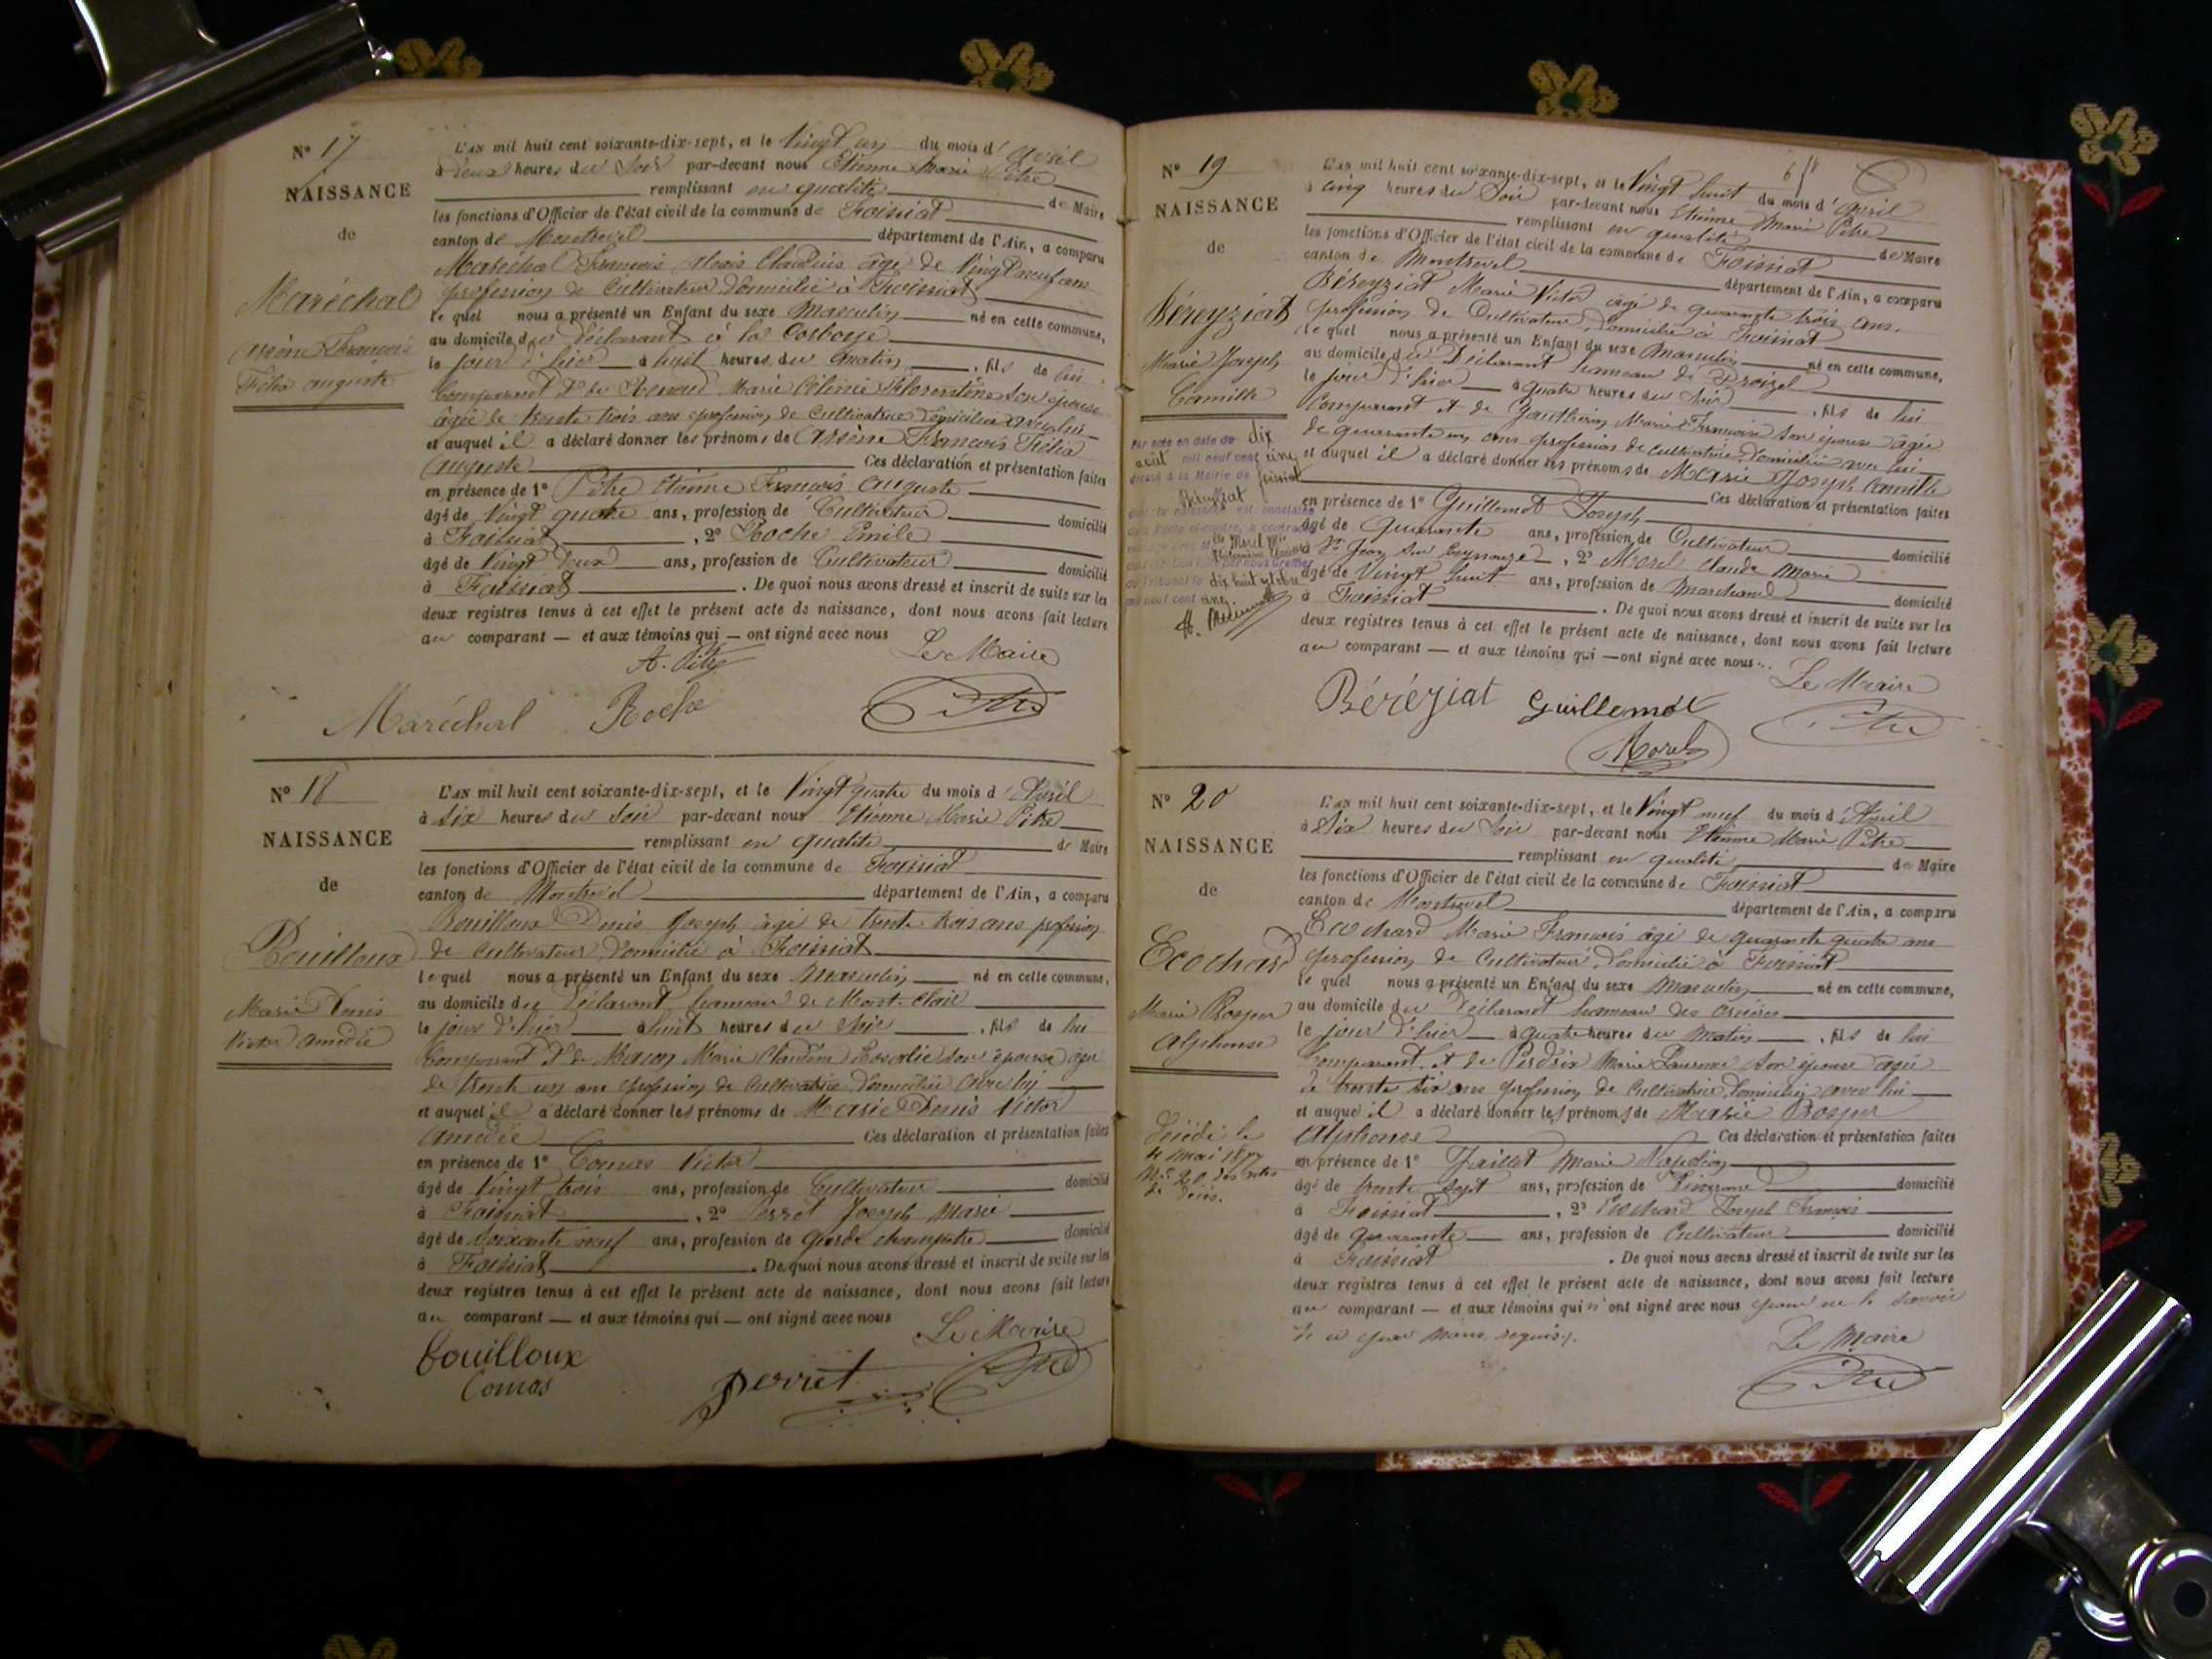 N° 17
NAISSANCE
de
Maréchal
Arsène François
Félix Auguste
L'AN mil huit cent soixante-dix-sept, et le Vingt un du mois d'Avril
à deux heures du Soir par-devant nous Etienne Marie Pitre
remplissant en qualité de Maire
les fonctions d'Officier de l'état civil de la commune de Foissiat
canton de Montrevel département de l'Ain, a comparu
Maréchal François Alexis Claudius âgé de Vingt neuf ans
profession de Cultivateur domicilié à Foissiat
le quel nous a présenté un Enfant du sexe Masculin né en cette commune,
au domicile du déclarant à la
le jour d'hier à huit heures du Matin, fils de lui
Comparant & de Renoud Marie son épouse
âgée de trente trois ans profession de Cultivatrice domiciliée avec lui
et auquel il a déclaré donner les prénoms de Arsène François Félix
Auguste Ces déclaration et présentation faites
en présence de 1° Pitre Etienne François Auguste
âgé de Vingt quatre ans, profession de Cultivateur domicilié
à Foissiat, 2° Roche Emile
âgé de Vingt deux ans, profession de Cultivateur domicilié
à Foissiat. De quoi nous avons dressé et inscrit de suite sur les
deux registres tenus à cet effet le présent acte de naissance, dont nous avons fait lecture
au comparant — et aux témoins qui — ont signé avec nous
Le Maire
A. Pitre
Maréchal Roche Pitre
N° 18
NAISSANCE
de
Bouilloux
Marie Denis
Victor Amédée
L'AN mil huit cent soixante-dix-sept, et le Vingt quatre du mois d'Avril
à Six heures du Soir par-devant nous Etienne Marie Pitre
remplissant en qualité de Maire
les fonctions d'Officier de l'état civil de la commune de Foissiat
canton de Montrevel département de l'Ain, a comparu
Bouilloux Denis Joseph âgé de trente trois ans profession
de Cultivateur domicilié à Foissiat
le quel nous a présenté un Enfant du sexe Masculin né en cette commune,
au domicile du déclarant hameau de Mont-Clair
le jour d'hier à huit heures du Soir, fils de lui
Comparant & de Macon Marie Claudine Rosalie son épouse âgée
de trente un ans profession de Cultivatrice domiciliée avec lui
et auquel il a déclaré donner les prénoms de Marie Denis Victor
Amédée Ces déclaration et présentation faites
en présence de 1° Comas Victor
âgé de Vingt trois ans, profession de Cultivateur domicilié
à Foissiat, 2° Perret Joseph Marie
âgé de soixante neuf ans, profession de garde champêtre domicilié
à Foissiat. De quoi nous avons dressé et inscrit de suite sur les
deux registres tenus à cet effet le présent acte de naissance, dont nous avons fait lecture
au comparant — et aux témoins qui — ont signé avec nous
Le Maire
Bouilloux
Comas perret Pitre
N° 19
NAISSANCE
de
Béreyziat
Marie Joseph
Camille
Par acte en date du dix
août mil neuf cent cinq
dressé à la Mairie de Foissiat
Béreyziat
dix huit octobre
mil neuf cent cinq.
L'AN mil huit cent soixante-dix-sept, et le Vingt huit du mois d'Avril
à cinq heures du Soir par-devant nous Etienne Marie Pitre
remplissant en qualité de Maire
les fonctions d'Officier de l'état civil de la commune de Foissiat
canton de Montrevel département de l'Ain, a comparu
Béreyziat Marie Victor âgé de quarante trois ans.
profession de Cultivateur, domicilié à Foissiat
le quel nous a présenté un Enfant du sexe Masculin né en cette commune,
au domicile du Déclarant hameau de
le jour d'hier à quatre heures du Soir, fils de lui
Comparant et de Gauthier Marie Françoise son épouse âgée
de quarante un ans profession de cultivatrice, domiciliée avec lui
et auquel il a déclaré donner les prénoms de Marie Joseph Camille
Ces déclaration et présentation faites
en présence de 1° Guillemot Joseph
âgé de Quarante ans, profession de Cultivateur domicilié
à St Jean sur Reyssouze, 2° Morel Claude Marie
âgé de Vingt huit ans, profession de Marchand domicilié
à Foissiat. De quoi nous avons dressé et inscrit de suite sur les
deux registres tenus à cet effet le présent acte de naissance, dont nous avons fait lecture
au comparant — et aux témoins qui — ont signé avec nous.
Le Maire
Béréziat Guillemot Pitre
Morel
N° 20
NAISSANCE
de
Ecochard
Marie Prosper
Alphonse
Décédé le
4 mai 1877
N° 20 des actes
de décès.
L'AN mil huit cent soixante-dix-sept, et le Vingt neuf du mois d'Avril
à Six heures du Soir par-devant nous Etienne Marie Pitre
remplissant en qualité de Maire
les fonctions d'Officier de l'état civil de la commune de Foissiat
canton de Montrevel département de l'Ain, a comparu
Ecochard Marie François âgé de quarante quatre ans
profession de Cultivateur, domicilié à Foissiat
le quel nous a présenté un Enfant du sexe Masculin né en cette commune,
au domicile du déclarant hameau des
le jour d'hier à quatre heures du Matin, fils de lui
Comparant & de Perdrix Marie Laurence son épouse âgée
de trente six ans profession de Cultivatrice, domiciliée avec lui
et auquel il a déclaré donner les prénoms de Marie Prosper
Alphonse Ces déclaration et présentation faites
en présence de 1° Jaillet Marie Napoléon
âgé de trente sept ans, profession de domicilié
à Foissiat, 2° Ecochard Joseph François
âgé de quarante ans, profession de Cultivateur domicilié
à Foissiat. De quoi nous avons dressé et inscrit de suite sur les
deux registres tenus à cet effet le présent acte de naissance, dont nous avons fait lecture
au comparant — et aux témoins qui n'ont signé avec nous pour ne le savoir
de ce par nous requis.
Le Maire
Pitre